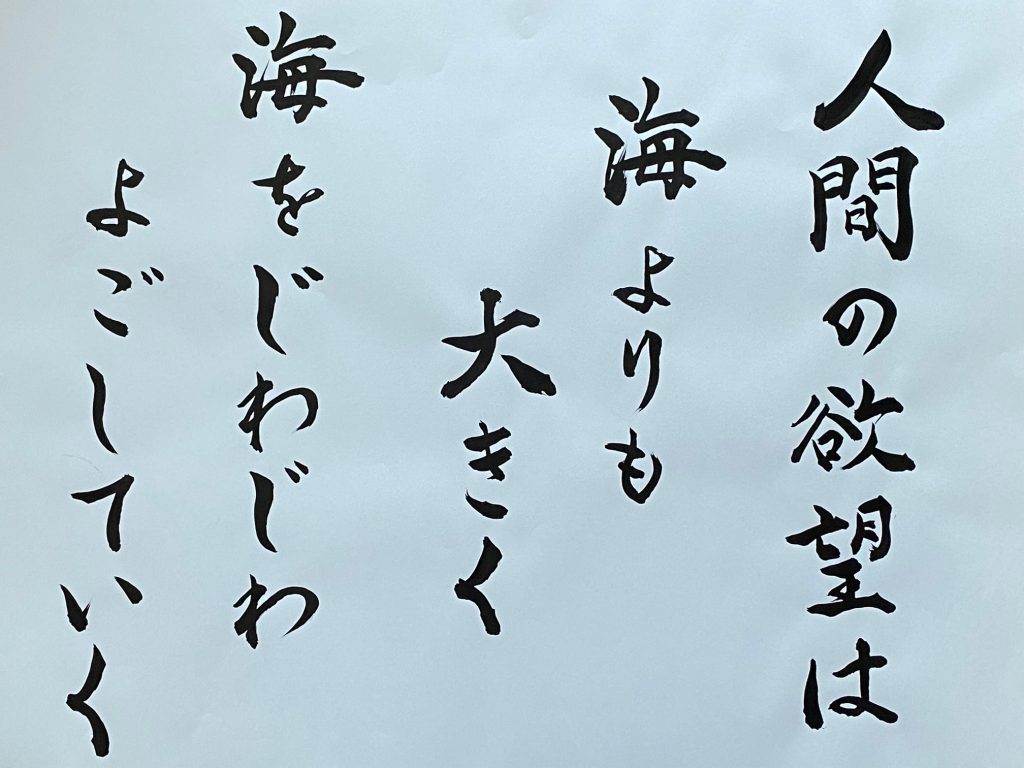 人間の欲望は
海よりも
大きく
海をじわじわ
よごしていく